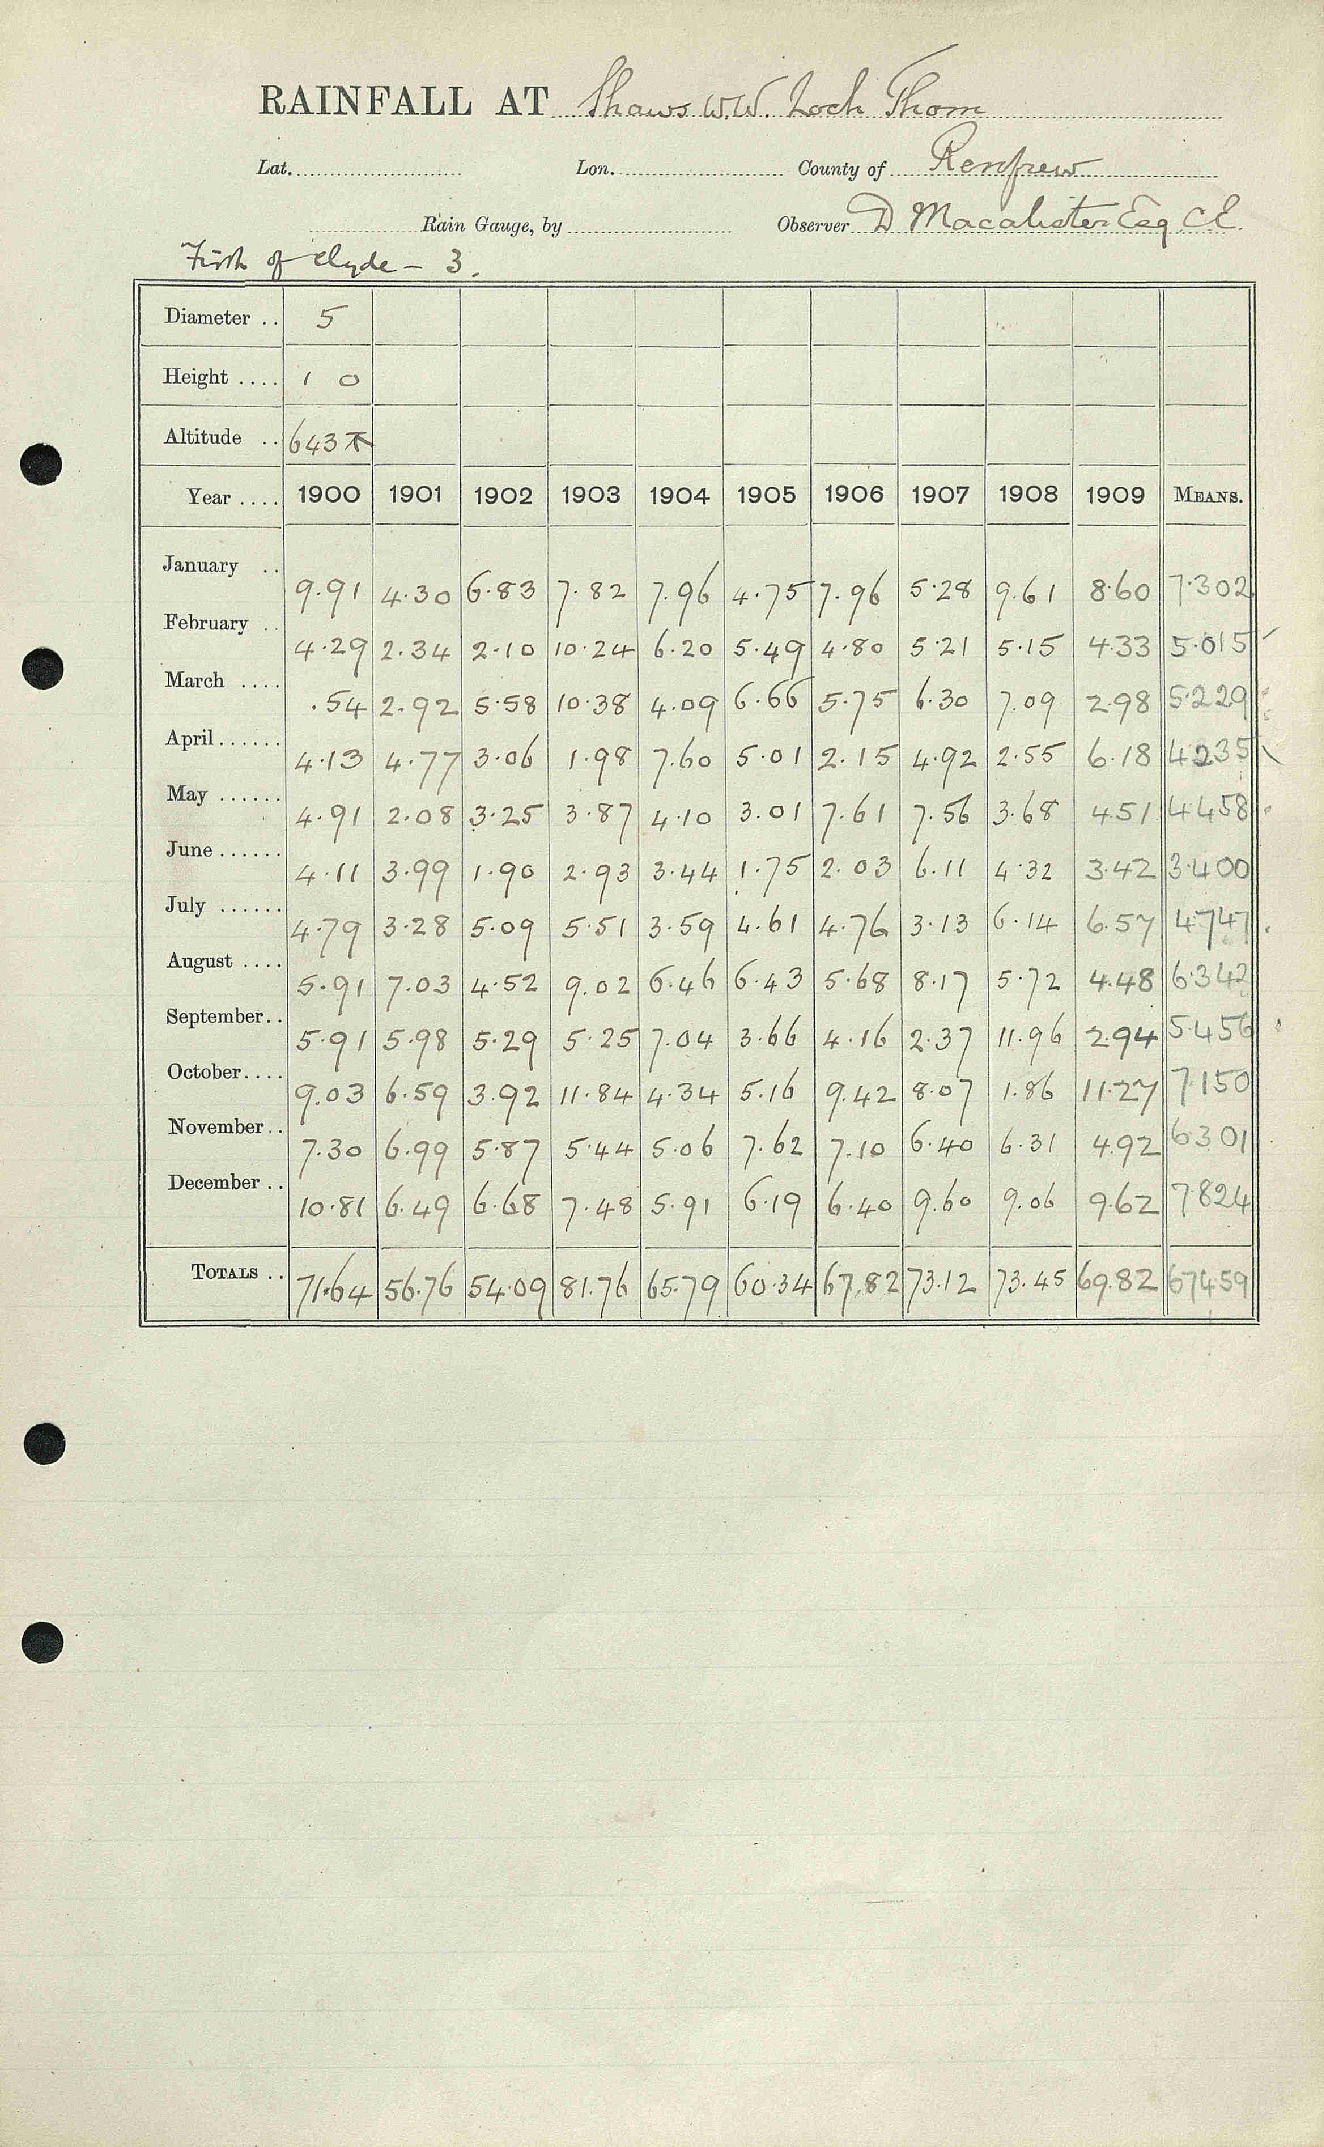 RAINFALL AT Shaws W.W. Loch Thom
Lat. Lon. County of Renfrew
Rain Gauge, by Observer D Macalister Esq C.E.
Firth of Clyde - 3.
Diameter .. 5
Height .... 1 0
Altitude .. 643
Year .... 1900 1901 1902 1903 1904 1905 1906 1907 1908 1909 MEANS.
January .. 9.91 4.30 6.83 7.82 7.96 4.75 7.96 5.28 9.61 8.60 7.302
February .. 4.29 2.34 2.10 10.24 6.20 5.49 4.80 5.21 5.15 4.33 5.015
March .... .54 2.92 5.58 10.38 4.09 6.66 5.75 6.30 7.09 2.98 5.229
April ...... 4.13 4.77 3.06 1.98 7.60 5.01 2.15 4.92 2.55 6.18 4.235
May ...... 4.91 2.08 3.25 3.87 4.10 3.01 7.61 7.56 3.68 4.51 4.458
June ...... 4.11 3.99 1.90 2.93 3.44 1.75 2.03 6.11 4.32 3.42 3.400
July ...... 4.79 3.28 5.09 5.51 3.59 4.61 4.76 3.13 6.14 6.57 4.747
August .... 5.91 7.03 4.52 9.02 6.46 6.43 5.68 8.17 5.72 4.48 6.342
September .. 5.91 5.98 5.29 5.25 7.04 3.66 4.16 2.37 11.96 2.94 5.456
October .... 9.03 6.59 3.92 11.84 4.34 5.16 9.42 8.07 1.86 11.27 7.150
November .. 7.30 6.99 5.87 5.44 5.06 7.62 7.10 6.40 6.31 4.92 6.301
December .. 10.81 6.49 6.68 7.48 5.91 6.19 6.40 9.60 9.06 9.62 7.824
TOTALS .. 71.64 56.76 54.09 81.76 65.79 60.34 67.82 73.12 73.45 69.82 67.459